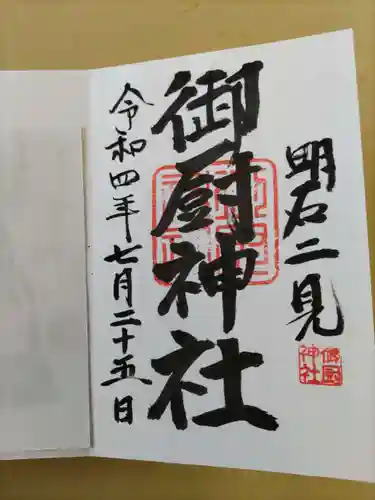 明石二見
御厨神社
令和四年七月二十五日
御厨
神社